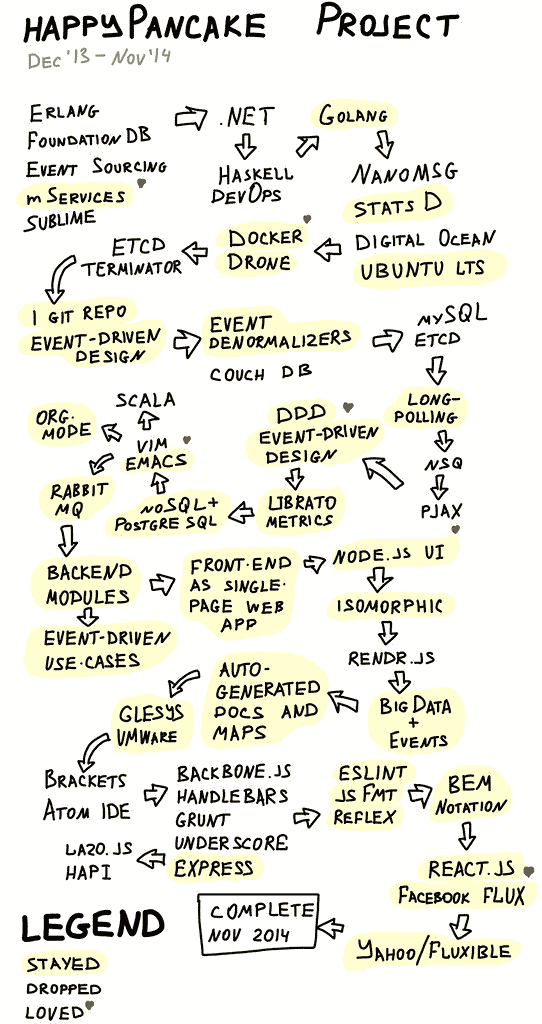 HAPPYPANCAKE PROJECT
DEC '13 – NOV '14
ERLANG
FOUNDATION DB
EVENT SOURCING
mSERVICES
SUBLIME
.NET
HASKELL
DEVOPS
GOLANG
NANOMSG
STATS D
DIGITAL OCEAN
UBUNTU LTS
DOCKER
DRONE
ETCD
TERMINATOR
1 GIT REPO
EVENT-DRIVEN
DESIGN
EVENT
DENORMALIZERS
COUCH DB
MYSQL
ETCD
LONG-
POLLING
NSQ
PJAX
DDD
EVENT-DRIVEN
DESIGN
LIBRATO
METRICS
NOSQL+
POSTGRE SQL
VIM
EMACS
SCALA
ORG.
MODE
RABBIT
MQ
BACKEND
MODULES
EVENT-DRIVEN
USE-CASES
FRONT-END
AS SINGLE-
PAGE WEB
APP
NODE.JS UI
ISOMORPHIC
RENDR.JS
BIG DATA
+
EVENTS
AUTO-
GENERATED
DOCS AND
MAPS
GLESYS
VMWARE
BRACKETS
ATOM IDE
BACKBONE.JS
HANDLEBARS
GRUNT
UNDERSCORE
EXPRESS
LAZO.JS
HAPI
ESLINT
JS FMT
REFLEX
BEM
NOTATION
REACT.JS
FACEBOOK FLUX
YAHOO/FLUXIBLE
COMPLETE
NOV 2014
LEGEND
STAYED
DROPPED
LOVED